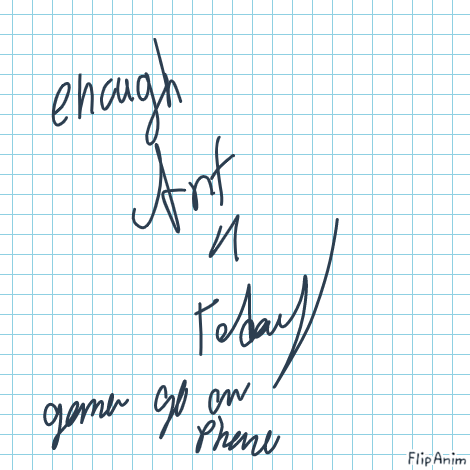 enough
Ant
n
today
gamer go on
phone
FlipAnim